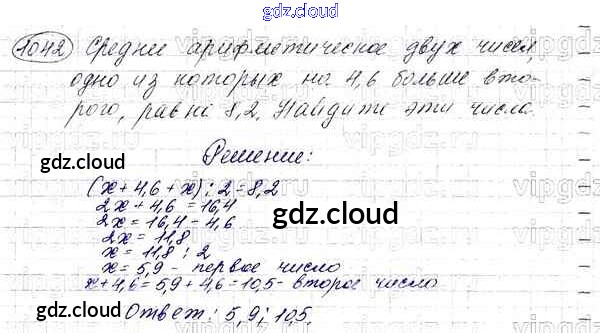 gdz.cloud
1042 Среднее арифметическое двух чисел,
одно из которых на 4,6 больше вто-
рого, равна 8,2. Найдите эти числа.
Решение:
gdz.cloud
(x + 4,6 + x) : 2 = 8,2
2x + 4,6 = 16,4
2x = 16,4 - 4,6
gdz.cloud
2x = 11,8
x = 11,8 : 2
x = 5,9 - первое число
x + 4,6 = 5,9 + 4,6 = 10,5 - второе число
gdz.cloud
gdz.cloud
Ответ: 5,9; 10,5